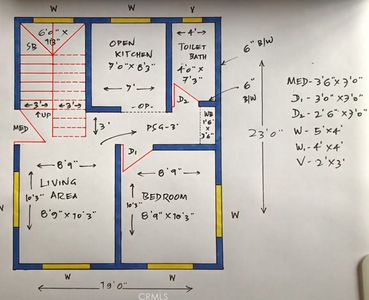 W W V
6'0" x
7'3"
SB
OPEN
KITCHEN
7'0" x 8'3"
7'
4'
TOILET
BATH
4'0" x
7'3"
6" B/W
6"
B/W
3' 3'
UP
MED
3'
OP.
PSG-3'
D2
WB
1'6"
x
3'6"
D1
23'0"
MED-3'6"x7'0"
D1- 3'0"x7'0"
D2- 2'6"x7'0"
W- 5'x4'
W1- 4'x4'
V- 2'x3'
8'9" 8'9"
W
10'3"
LIVING
AREA
8'9"x10'3"
10'3"
BEDROOM
8'9"x10'3"
W
W
W W
19'0"
CRMLS